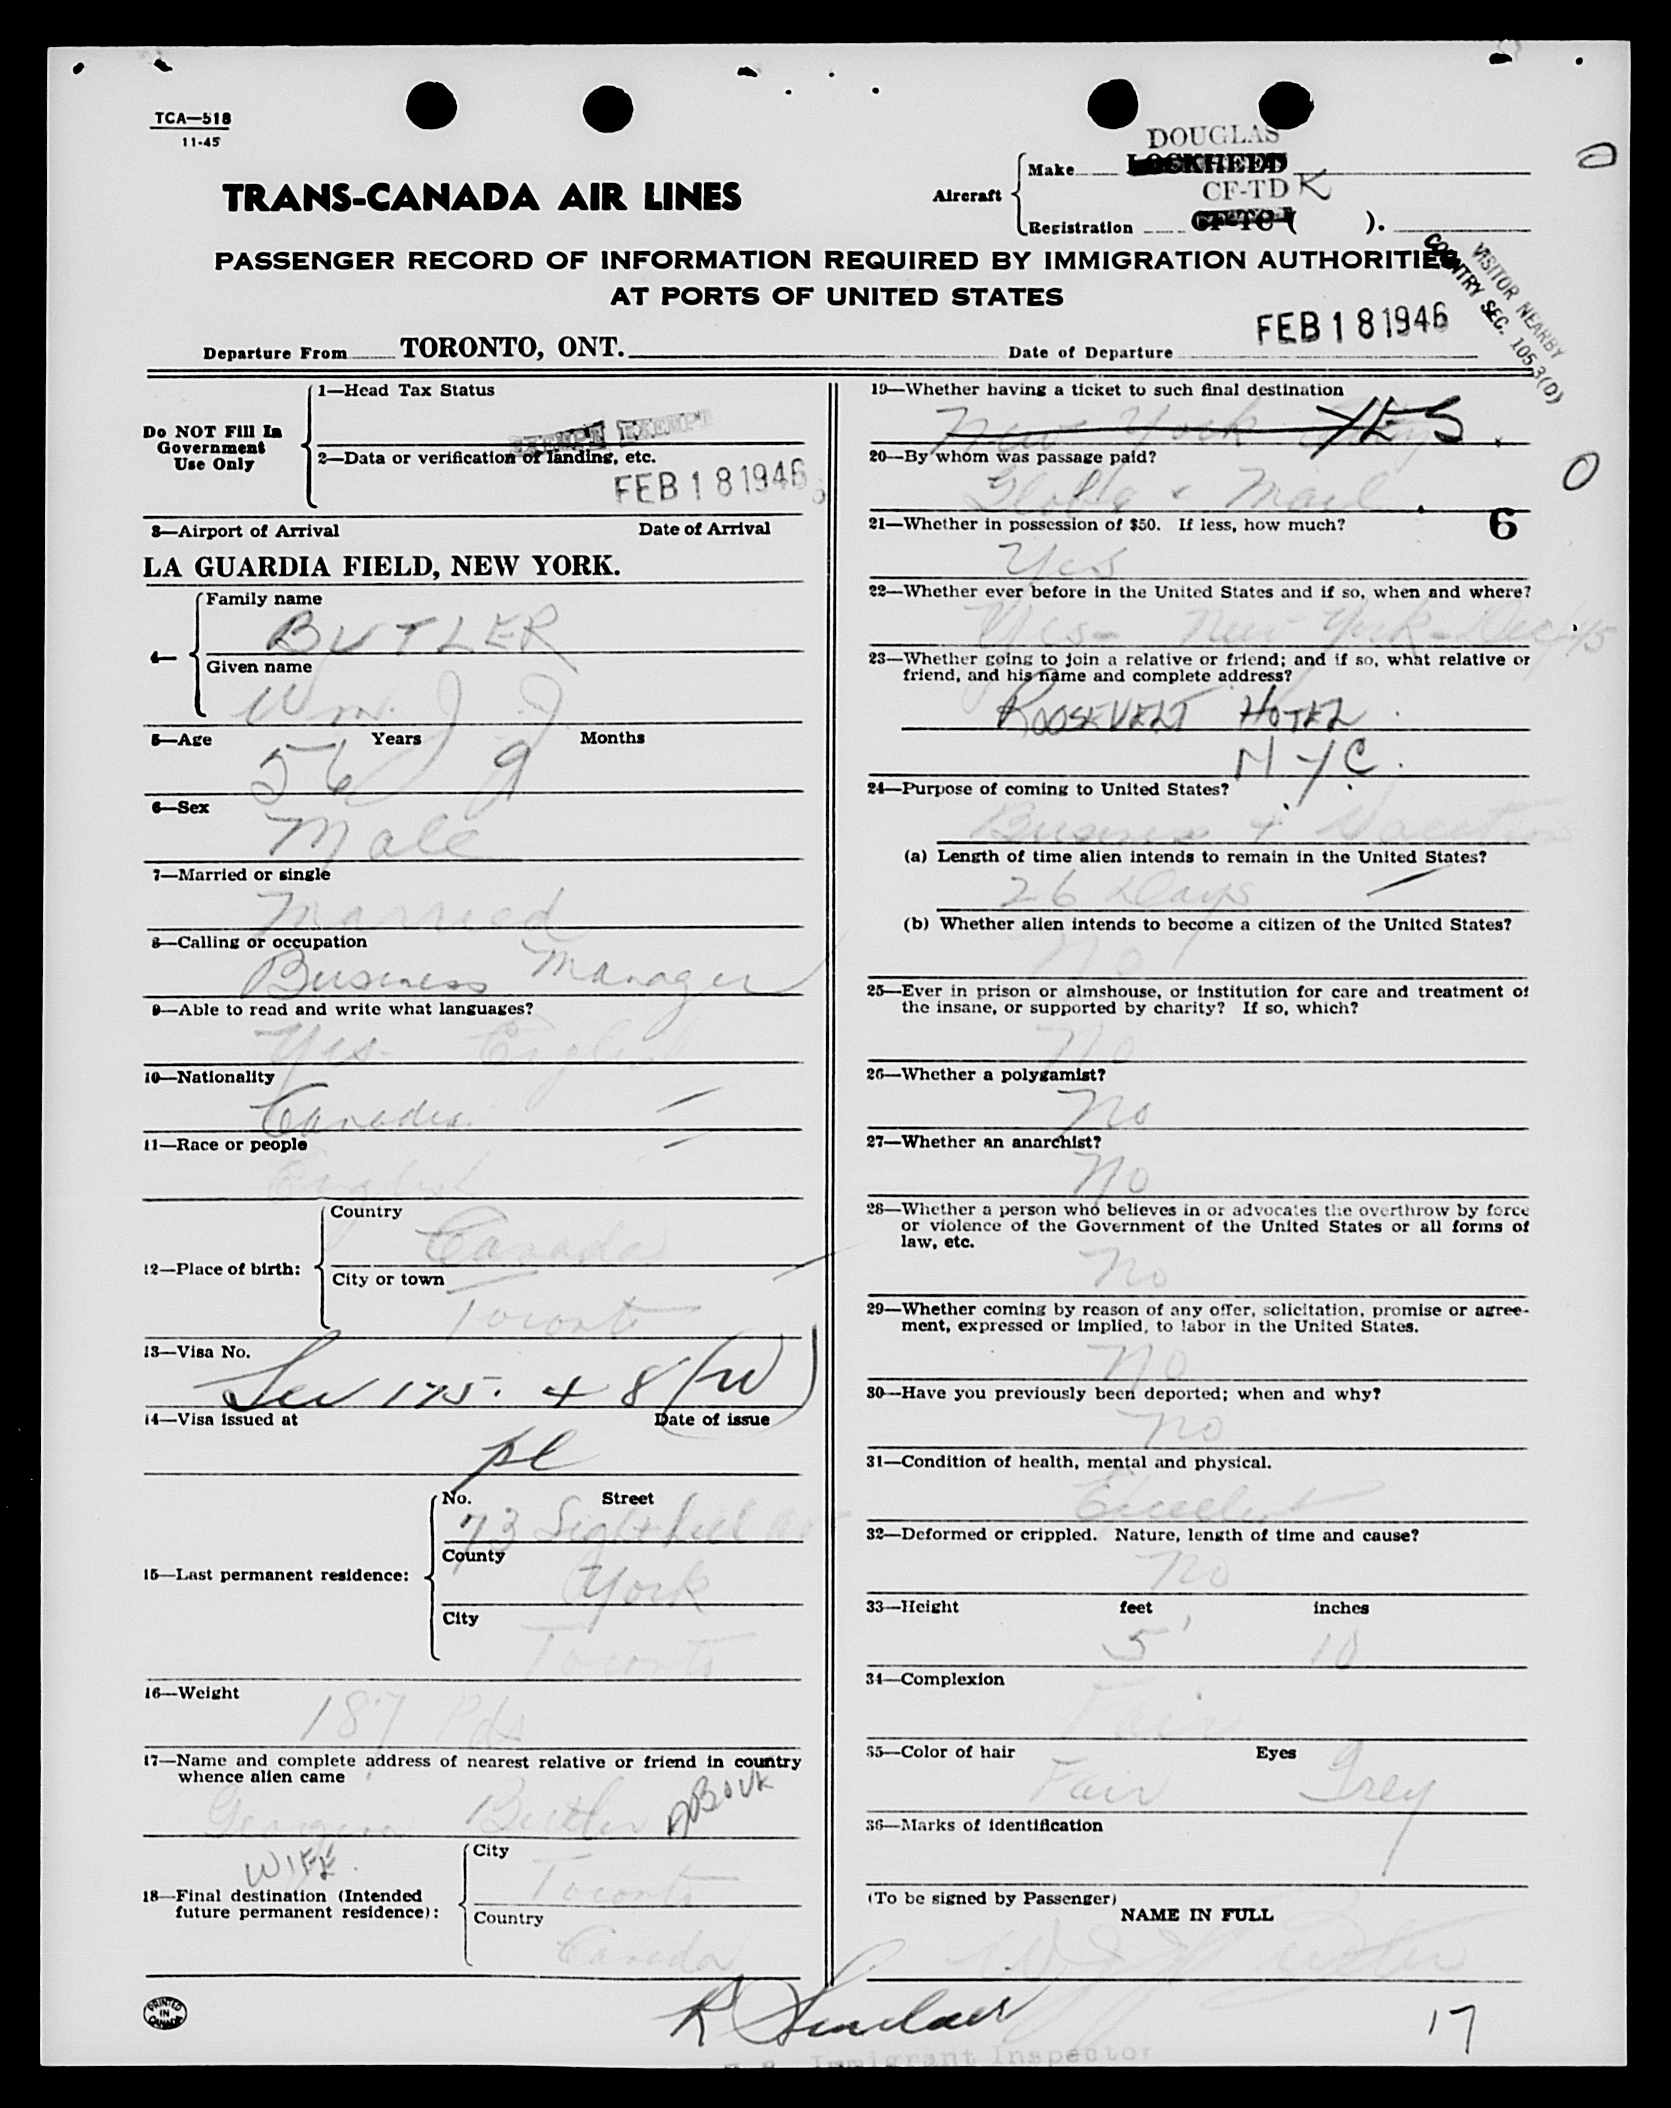 TCA—518
11-45
DOUGLAS
Aircraft
Make LOCKHEED
CF-TD K
Registration CF-TC ( ).
TRANS-CANADA AIR LINES
PASSENGER RECORD OF INFORMATION REQUIRED BY IMMIGRATION AUTHORITIES
AT PORTS OF UNITED STATES
VISITOR NEARBY
COUNTRY SEC. 105.3(D)
Departure From TORONTO, ONT.
Date of Departure FEB 18 1946
Do NOT Fill In
Government
Use Only
1—Head Tax Status
EXEMPT
2—Data or verification of landing, etc.
FEB 18 1946
3—Airport of Arrival Date of Arrival
LA GUARDIA FIELD, NEW YORK.
4—
Family name
BUTLER
Given name
Wm. J. J.
5—Age Years Months
56 9
6—Sex
Male
7—Married or single
Married
8—Calling or occupation
Business Manager
9—Able to read and write what languages?
Yes - English
10—Nationality
Canadian
11—Race or people
English
12—Place of birth:
Country
Canada
City or town
Toronto
13—Visa No.
Sec 175. 4 8 (W)
14—Visa issued at Date of issue
pl
15—Last permanent residence:
No. Street
73 Sighthill Ave
County
York
City
Toronto
16—Weight
187 Pds
17—Name and complete address of nearest relative or friend in country
whence alien came
Georgina Butler ABOVE
WIFE.
18—Final destination (Intended
future permanent residence):
City
Toronto
Country
Canada
PRINTED
IN
CANADA
19—Whether having a ticket to such final destination
New York City YES.
20—By whom was passage paid?
Globe & Mail
21—Whether in possession of $50. If less, how much?
6
Yes
22—Whether ever before in the United States and if so, when and where?
Yes - New York - Dec/45
23—Whether going to join a relative or friend; and if so, what relative or
friend, and his name and complete address?
ROOSEVELT HOTEL
N Y C.
24—Purpose of coming to United States?
Business & Vacation
(a) Length of time alien intends to remain in the United States?
26 Days
(b) Whether alien intends to become a citizen of the United States?
No
25—Ever in prison or almshouse, or institution for care and treatment of
the insane, or supported by charity? If so, which?
No
26—Whether a polygamist?
No
27—Whether an anarchist?
No
28—Whether a person who believes in or advocates the overthrow by force
or violence of the Government of the United States or all forms of
law, etc.
No
29—Whether coming by reason of any offer, solicitation, promise or agree-
ment, expressed or implied, to labor in the United States.
No
30—Have you previously been deported; when and why?
No
31—Condition of health, mental and physical.
Excellent
32—Deformed or crippled. Nature, length of time and cause?
No
33—Height feet inches
5' 10
34—Complexion
Fair
35—Color of hair Eyes
Fair Grey
36—Marks of identification
(To be signed by Passenger)
NAME IN FULL
W J J Butler
R Sinclair
Immigrant Inspector
17